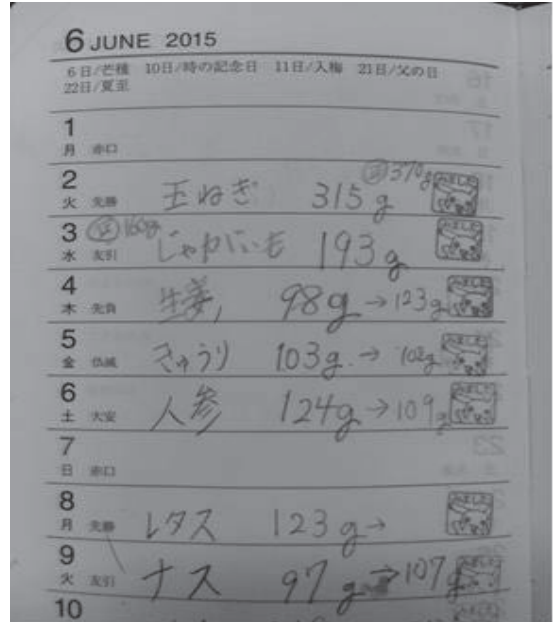 6 JUNE 2015
6日/芒種 10日/時の記念日 11日/入梅 21日/父の日
22日/夏至
1
月 赤口
2 正 370g
火 先勝 玉ねぎ 315g
3 正 160g
水 友引 じゃがいも 193g
4
木 先負 生姜 98g → 123g
5
金 仏滅 きゅうり 103g → 102g
6
土 大安 人参 124g → 109g
7
日 赤口
8
月 先勝 レタス 123g →
9
火 友引 ナス 97g → 107g
10